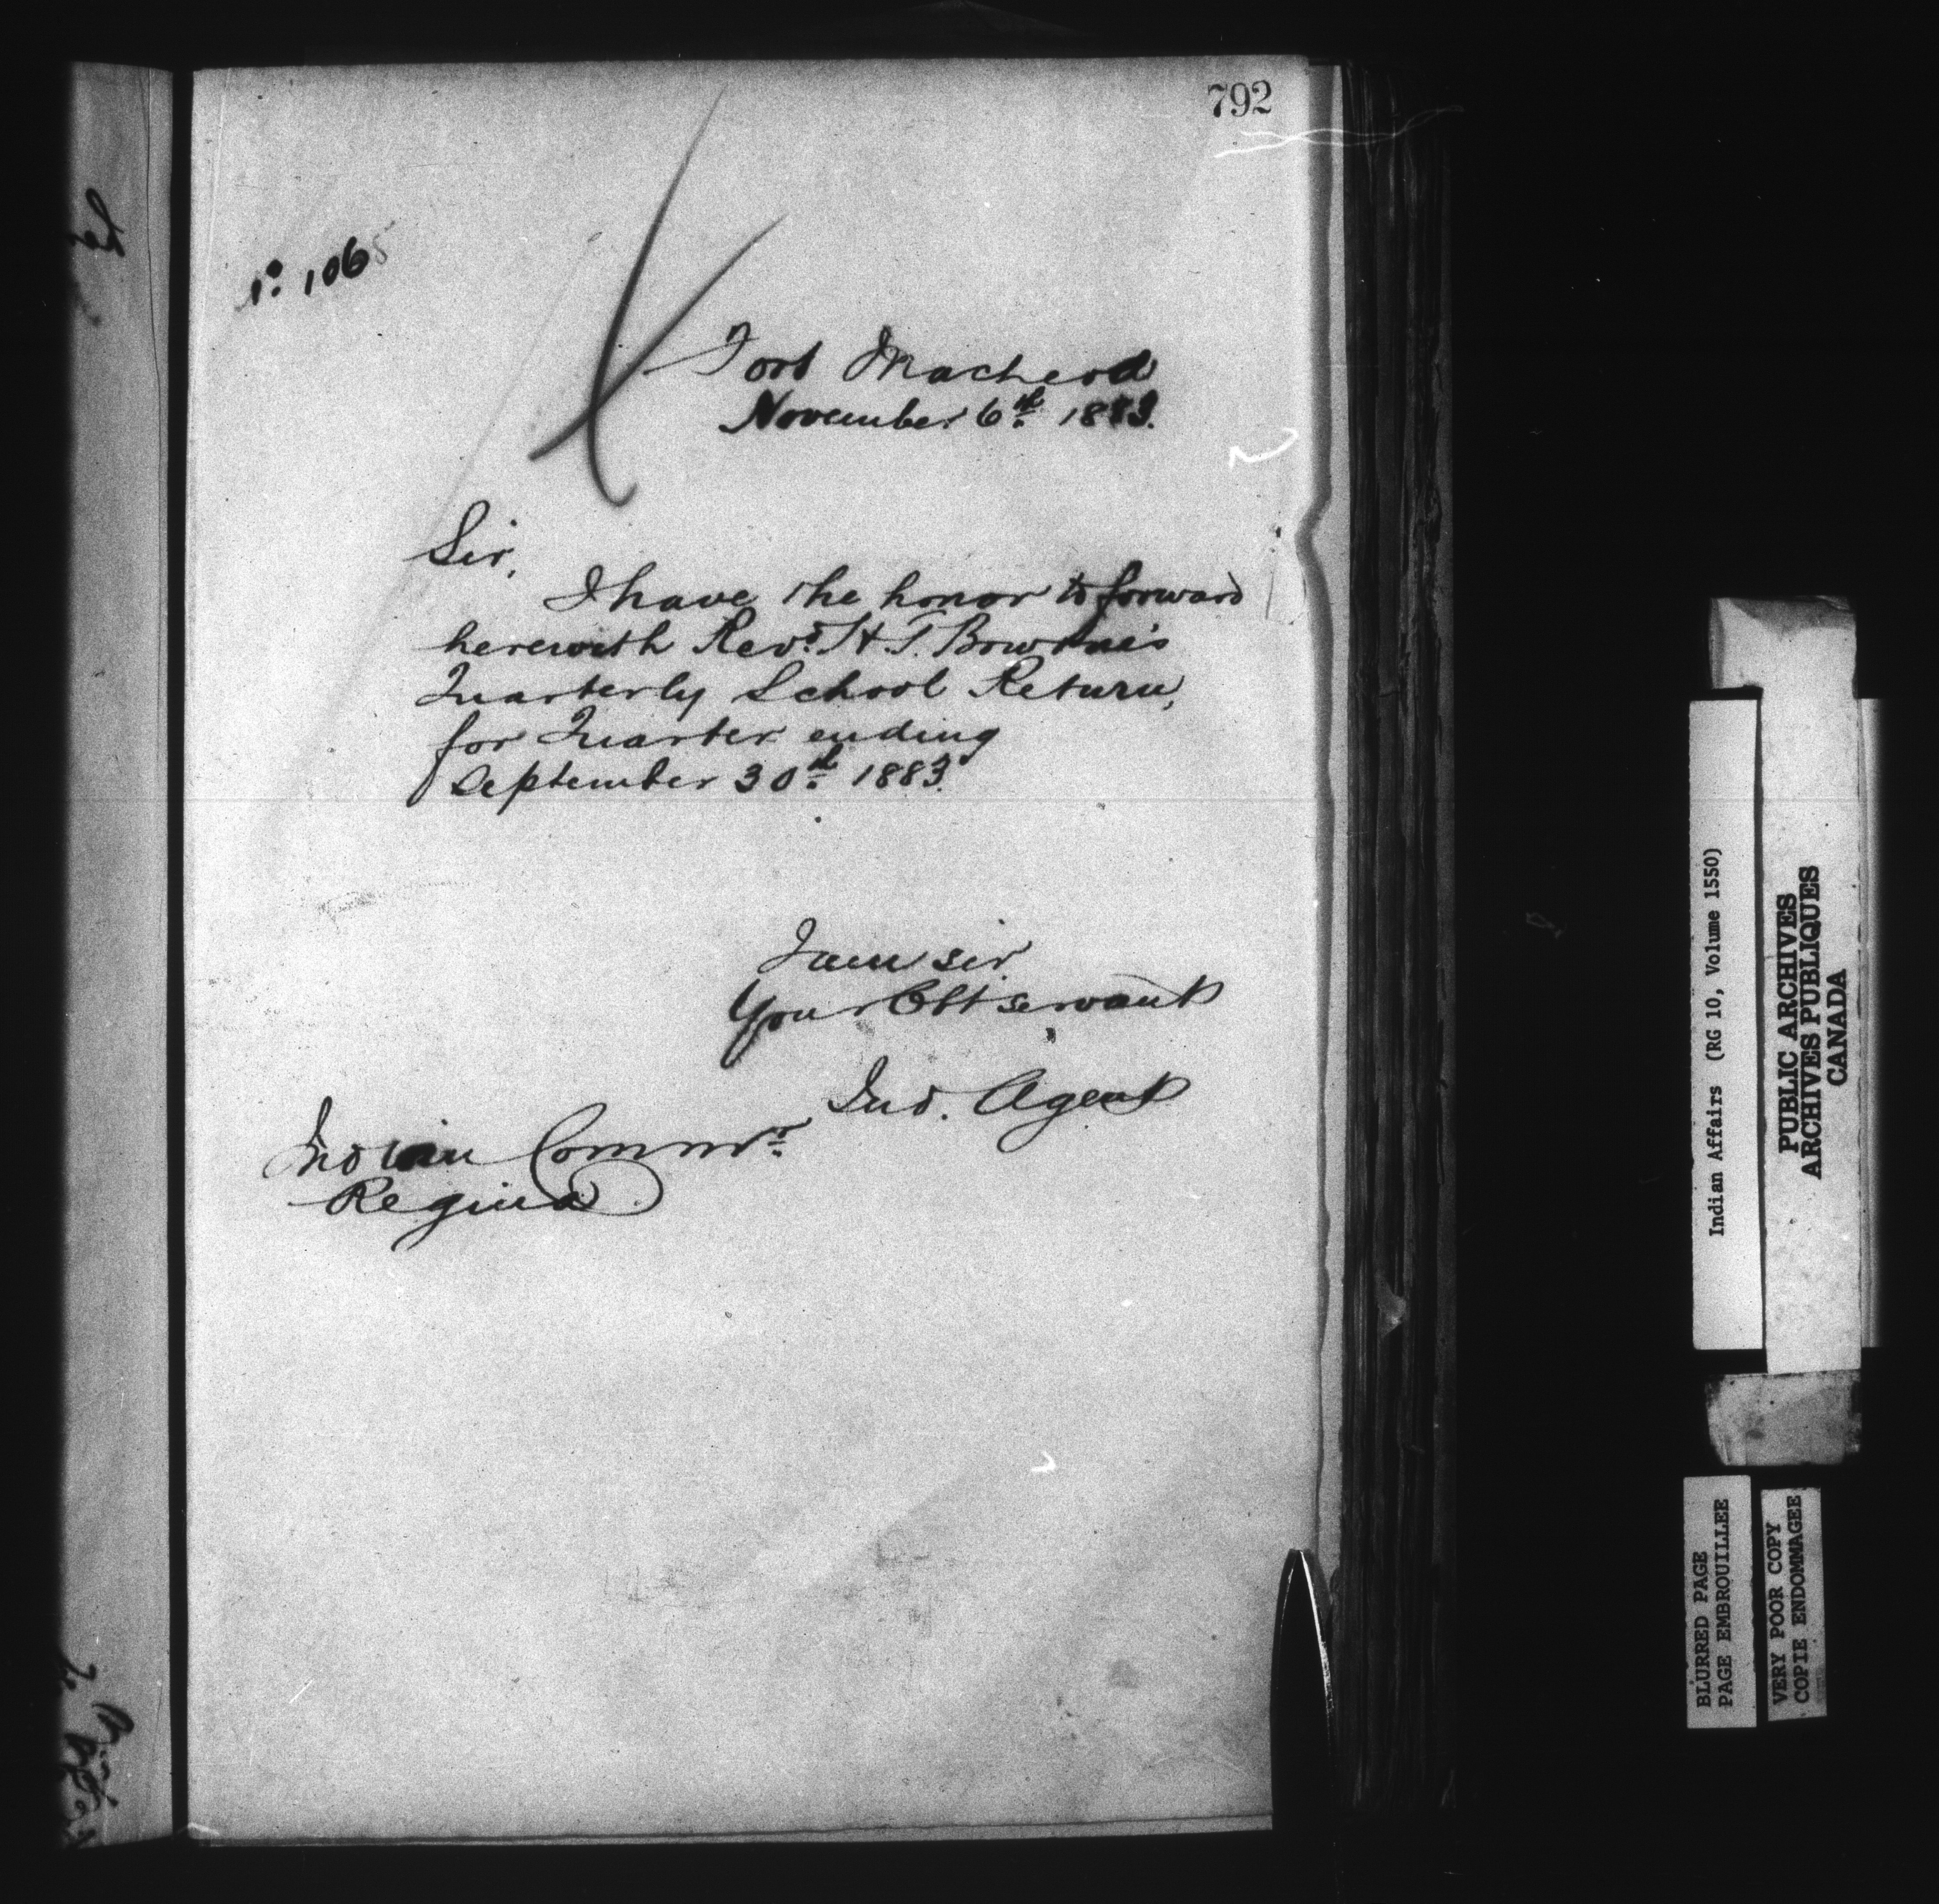 792
No. 1065
Fort Macleod
November 6th 1883.
Sir,
I have the honor to forward
herewith Revd. H. T. Bourne's
Quarterly School Return,
for Quarter ending
September 30th 1883.
I am sir
Your Obt servant
Ind. Agent
Indian Commr.
Regina
Indian Affairs (RG 10, Volume 1550)
PUBLIC ARCHIVES
ARCHIVES PUBLIQUES
CANADA
BLURRED PAGE
PAGE EMBROUILLEE
VERY POOR COPY
COPIE ENDOMMAGEE